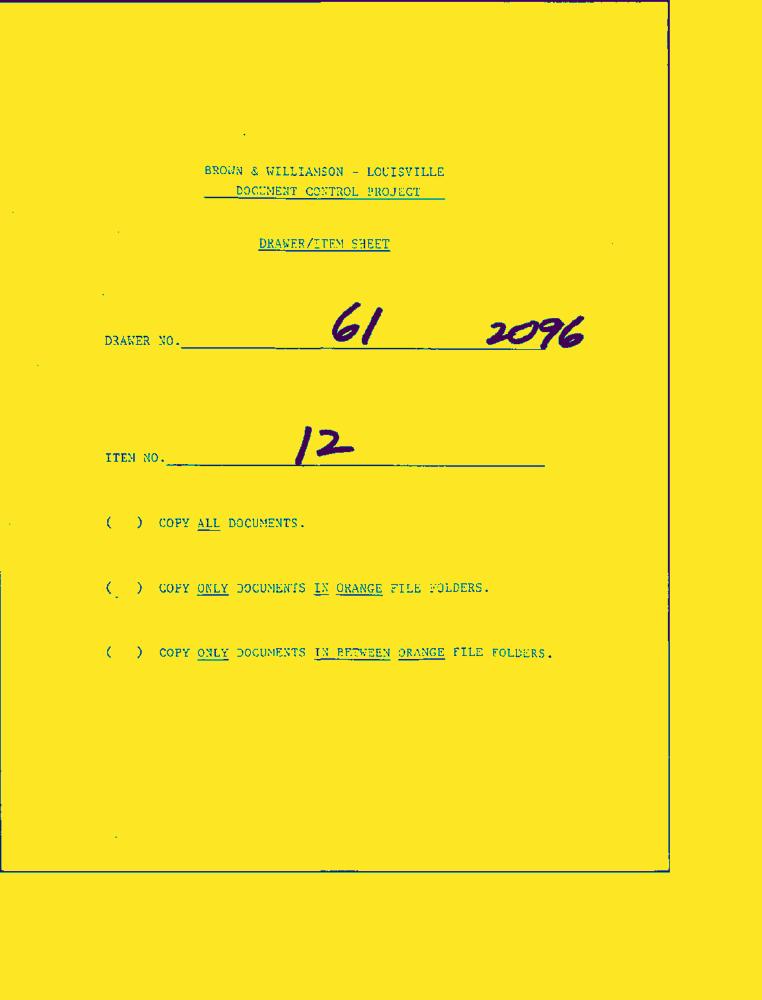 BROWN & WILLIAMSON - LOUISVILLE
DOCUMENT CONTROL PROJECT
DRAWER/ITEM SHEET
DRAWER NO. 61 2096
ITEM NO. 12
( ) COPY ALL DOCUMENTS.
( ) COPY ONLY DOCUMENTS IN ORANGE FILE FOLDERS.
( ) COPY ONLY DOCUMENTS IN BETWEEN ORANGE FILE FOLDERS.